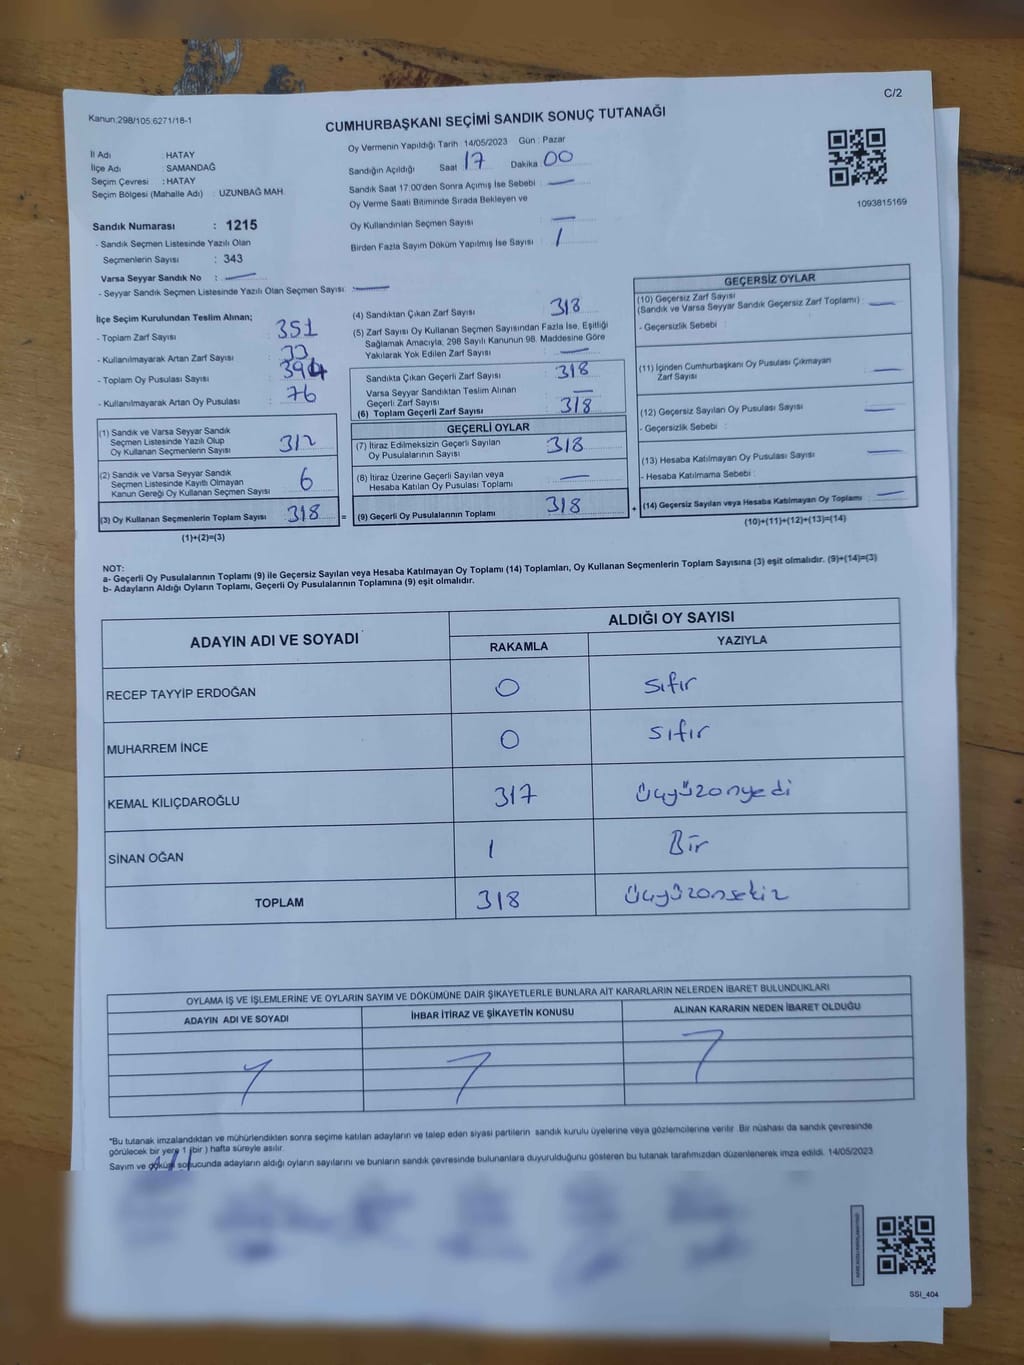 C/2
Kanun:298/105 6271/18-1
CUMHURBAŞKANI SEÇİMİ SANDIK SONUÇ TUTANAĞI
İl Adı : HATAY
İlçe Adı : SAMANDAĞ
Seçim Çevresi : HATAY
Seçim Bölgesi (Mahalle Adı) : UZUNBAĞ MAH.
Sandık Numarası : 1215
- Sandık Seçmen Listesinde Yazılı Olan
Seçmenlerin Sayısı : 343
Varsa Seyyar Sandık No : —
- Seyyar Sandık Seçmen Listesinde Yazılı Olan Seçmen Sayısı: —
Oy Vermenin Yapıldığı Tarih 14/05/2023 Gün : Pazar
Sandığın Açıldığı Saat 17 Dakika 00
Sandık Saat 17.00'den Sonra Açımış İse Sebebi : —
Oy Verme Saati Bitiminde Sırada Bekleyen ve
Oy Kullandırılan Seçmen Sayısı : —
Birden Fazla Sayım Döküm Yapılmış İse Sayısı : 1
1093815169
İlçe Seçim Kurulundan Teslim Alınan;
- Toplam Zarf Sayısı : 351
- Kullanılmayarak Artan Zarf Sayısı : 33
- Toplam Oy Pusulası Sayısı : 394
- Kullanılmayarak Artan Oy Pusulası : 76
(1) Sandık ve Varsa Seyyar Sandık
Seçmen Listesinde Yazılı Olup
Oy Kullanan Seçmenlerin Sayısı : 312
(2) Sandık ve Varsa Seyyar Sandık
Seçmen Listesinde Kayıtlı Olmayan
Kanun Gereği Oy Kullanan Seçmen Sayısı : 6
(3) Oy Kullanan Seçmenlerin Toplam Sayısı : 318 =
(1)+(2)=(3)
(4) Sandıktan Çıkan Zarf Sayısı : 318
(5) Zarf Sayısı Oy Kullanan Seçmen Sayısından Fazla İse, Eşitliği
Sağlamak Amacıyla, 298 Sayılı Kanunun 98. Maddesine Göre
Yakılarak Yok Edilen Zarf Sayısı : —
Sandıkta Çıkan Geçerli Zarf Sayısı : 318
Varsa Seyyar Sandıktan Teslim Alınan
Geçerli Zarf Sayısı : —
(6) Toplam Geçerli Zarf Sayısı : 318
GEÇERLİ OYLAR
(7) İtiraz Edilmeksizin Geçerli Sayılan
Oy Pusulalarının Sayısı : 318
(8) İtiraz Üzerine Geçerli Sayılan veya
Hesaba Katılan Oy Pusulası Toplamı : —
(9) Geçerli Oy Pusulalarının Toplamı : 318 +
GEÇERSİZ OYLAR
(10) Geçersiz Zarf Sayısı
(Sandık ve Varsa Seyyar Sandık Geçersiz Zarf Toplamı) : —
- Geçersizlik Sebebi :
(11) İçinden Cumhurbaşkanı Oy Pusulası Çıkmayan
Zarf Sayısı : —
(12) Geçersiz Sayılan Oy Pusulası Sayısı : —
- Geçersizlik Sebebi :
(13) Hesaba Katılmayan Oy Pusulası Sayısı : —
- Hesaba Katılmama Sebebi :
(14) Geçersiz Sayılan veya Hesaba Katılmayan Oy Toplamı : —
(10)+(11)+(12)+(13)=(14)
NOT:
a- Geçerli Oy Pusulalarının Toplamı (9) ile Geçersiz Sayılan veya Hesaba Katılmayan Oy Toplamı (14) Toplamları, Oy Kullanan Seçmenlerin Toplam Sayısına (3) eşit olmalıdır. (9)+(14)=(3)
b- Adayların Aldığı Oyların Toplamı, Geçerli Oy Pusulalarının Toplamına (9) eşit olmalıdır.
ADAYIN ADI VE SOYADI
ALDIĞI OY SAYISI
RAKAMLA YAZIYLA
RECEP TAYYİP ERDOĞAN 0 sıfır
MUHARREM İNCE 0 sıfır
KEMAL KILIÇDAROĞLU 317 üçyüzonyedi
SİNAN OĞAN 1 Bir
TOPLAM 318 üçyüzonsekiz
OYLAMA İŞ VE İŞLEMLERİNE VE OYLARIN SAYIM VE DÖKÜMÜNE DAİR ŞİKAYETLERLE BUNLARA AİT KARARLARIN NELERDEN İBARET BULUNDUKLARI
ADAYIN ADI VE SOYADI İHBAR İTİRAZ VE ŞİKAYETİN KONUSU ALINAN KARARIN NEDEN İBARET OLDUĞU
*Bu tutanak imzalandıktan ve mühürlendikten sonra seçime katılan adayların ve talep eden siyasi partilerin sandık kurulu üyelerine veya gözlemcilerine verilir. Bir nüshası da sandık çevresinde
görülecek bir yere 1 (bir ) hafta süreyle asılır.
Sayım ve döküm sonucunda adayların aldığı oyların sayılarını ve bunların sandık çevresinde bulunanlara duyurulduğunu gösteren bu tutanak tarafımızdan düzenlenerek imza edildi. 14/05/2023
SSI_404